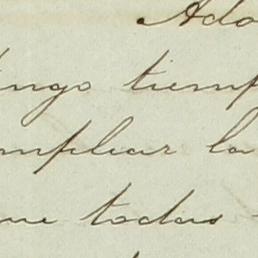 Ado
tengo tiemp
emplear la
que todas